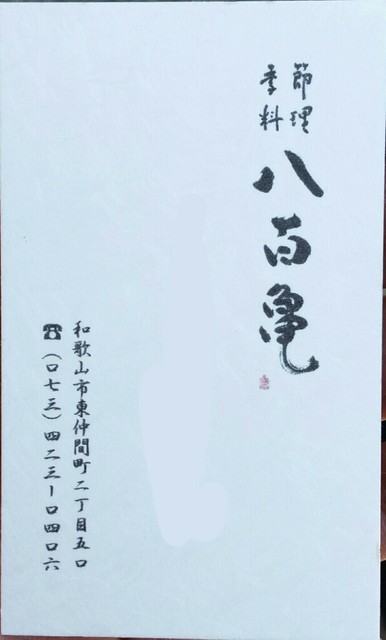 季節
料理
八百亀
和歌山市東仲間町二丁目五〇
☎(〇七三)四二三ー〇四〇六